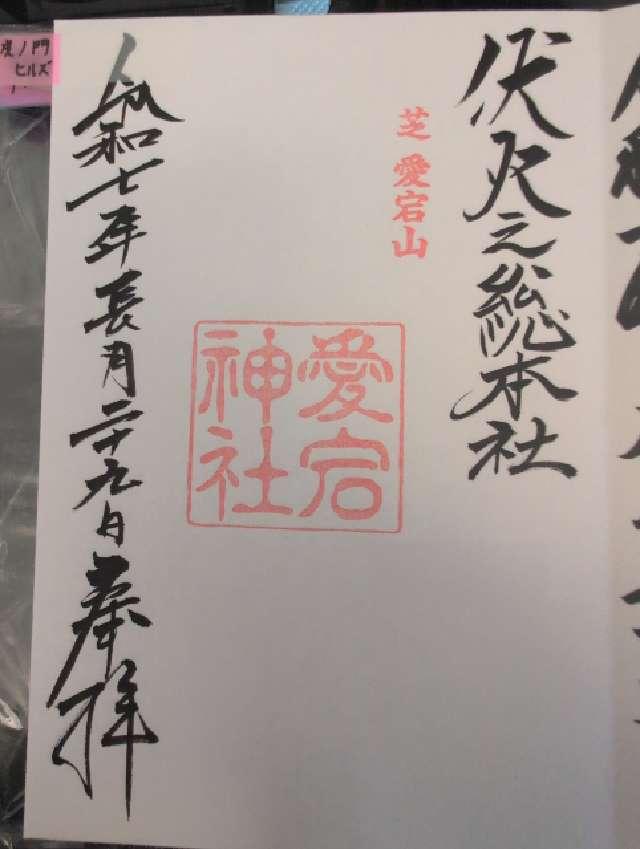 伏火之総本社
芝 愛宕山
愛宕
神社
令和七年長月二十九日奉拝
虎ノ門
ヒルズ